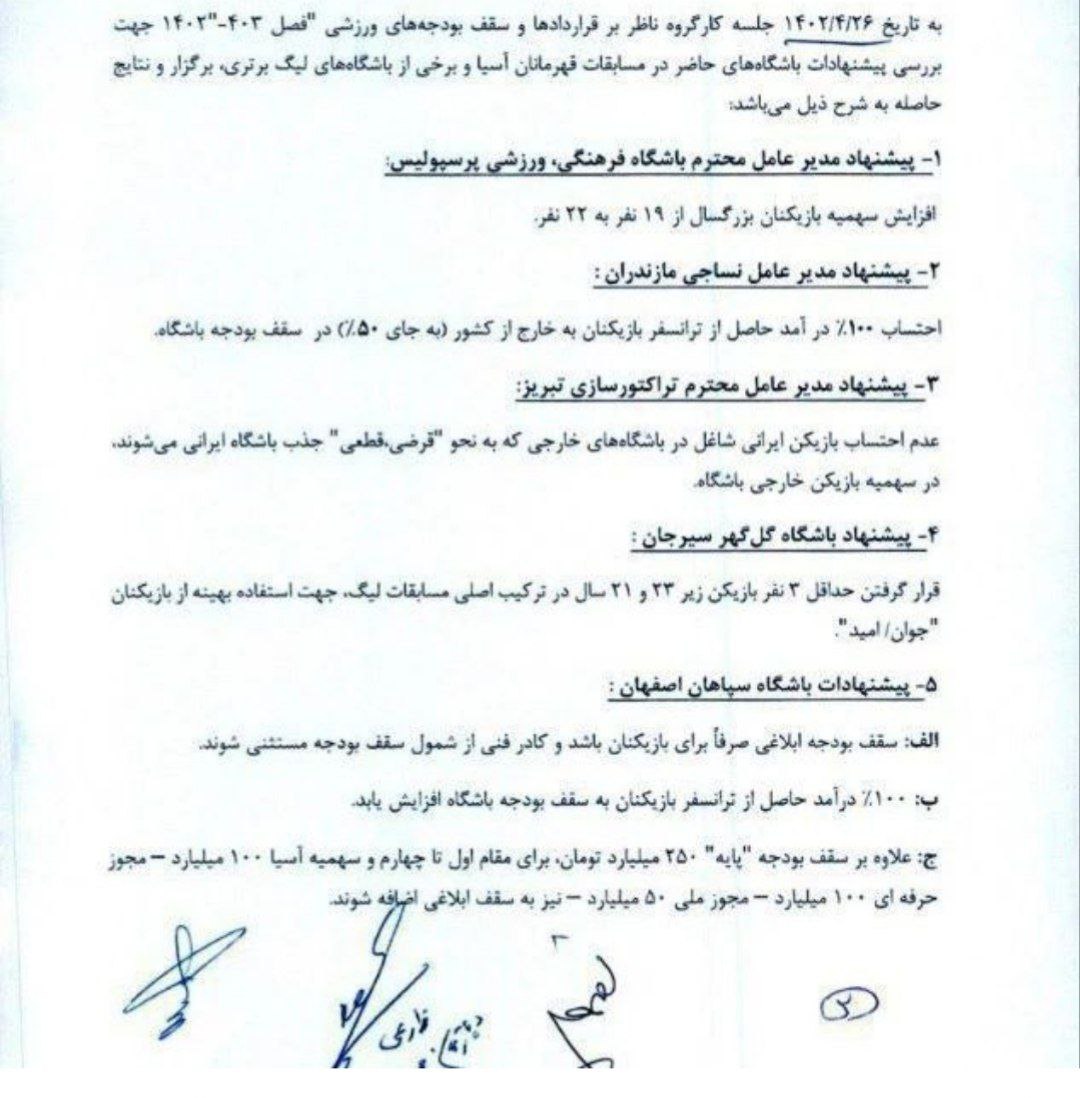 به تاریخ ۱۴۰۲/۴/۲۶ جلسه کارگروه ناظر بر قراردادها و سقف بودجه‌های ورزشی "فصل ۴۰۳-"۱۴۰۲ جهت
بررسی پیشنهادات باشگاه‌های حاضر در مسابقات قهرمانان آسیا و برخی از باشگاه‌های لیگ برتری، برگزار و نتایج
حاصله به شرح ذیل می‌باشد:
۱- پیشنهاد مدیر عامل محترم باشگاه فرهنگی، ورزشی پرسپولیس:
افزایش سهمیه بازیکنان بزرگسال از ۱۹ نفر به ۲۲ نفر.
۲- پیشنهاد مدیر عامل نساجی مازندران :
احتساب ۱۰۰٪ در آمد حاصل از ترانسفر بازیکنان به خارج از کشور (به جای ۵۰٪) در سقف بودجه باشگاه.
۳- پیشنهاد مدیر عامل محترم تراکتورسازی تبریز:
عدم احتساب بازیکن ایرانی شاغل در باشگاه‌های خارجی که به نحو "قرضی،قطعی" جذب باشگاه ایرانی می‌شوند،
در سهمیه بازیکن خارجی باشگاه.
۴- پیشنهاد باشگاه گل‌گهر سیرجان :
قرار گرفتن حداقل ۳ نفر بازیکن زیر ۲۳ و ۲۱ سال در ترکیب اصلی مسابقات لیگ، جهت استفاده بهینه از بازیکنان
"جوان/ امید".
۵- پیشنهادات باشگاه سپاهان اصفهان :
الف: سقف بودجه ابلاغی صرفاً برای بازیکنان باشد و کادر فنی از شمول سقف بودجه مستثنی شوند.
ب: ۱۰۰٪ درآمد حاصل از ترانسفر بازیکنان به سقف بودجه باشگاه افزایش یابد.
ج: علاوه بر سقف بودجه "پایه" ۲۵۰ میلیارد تومان، برای مقام اول تا چهارم و سهمیه آسیا ۱۰۰ میلیارد – مجوز
حرفه ای ۱۰۰ میلیارد – مجوز ملی ۵۰ میلیارد – نیز به سقف ابلاغی اضافه شوند.